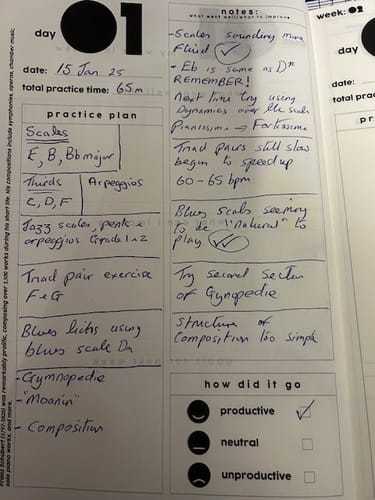 Franz Schubert (1797-1828) was remarkably prolific, composing over 1,500 works during his short life. His compositions include symphonies, operas, chamber music,
solo piano works, and more.
day 01
date: 15 Jan 25
total practice time: 65m
practice plan
Scales
E, B, Bb major
Thirds
C, D, F
Arpeggios
Jazz scales, penta +
arpeggios Grade 1+2
Triad pair exercise
F+G
Blues licks using
blues scale
- Gymnopedie
- "Moanin"
- Composition
notes:
what went well/what to improve
- Scales sounding more
Fluid ✓
- Eb is same as D#
REMEMBER!
Next time try using
Dynamics over the scale
Pianissimo → Fortissimo
Triad pairs still slow
begin to speed up
60-65 bpm
Blues scales seeming
to be "natural" to
play ✓
Try second section
of Gynopedie
Structure of
Composition too simple
how did it go
productive ✓
neutral
unproductive
week: 02
day
date:
total prac
pr